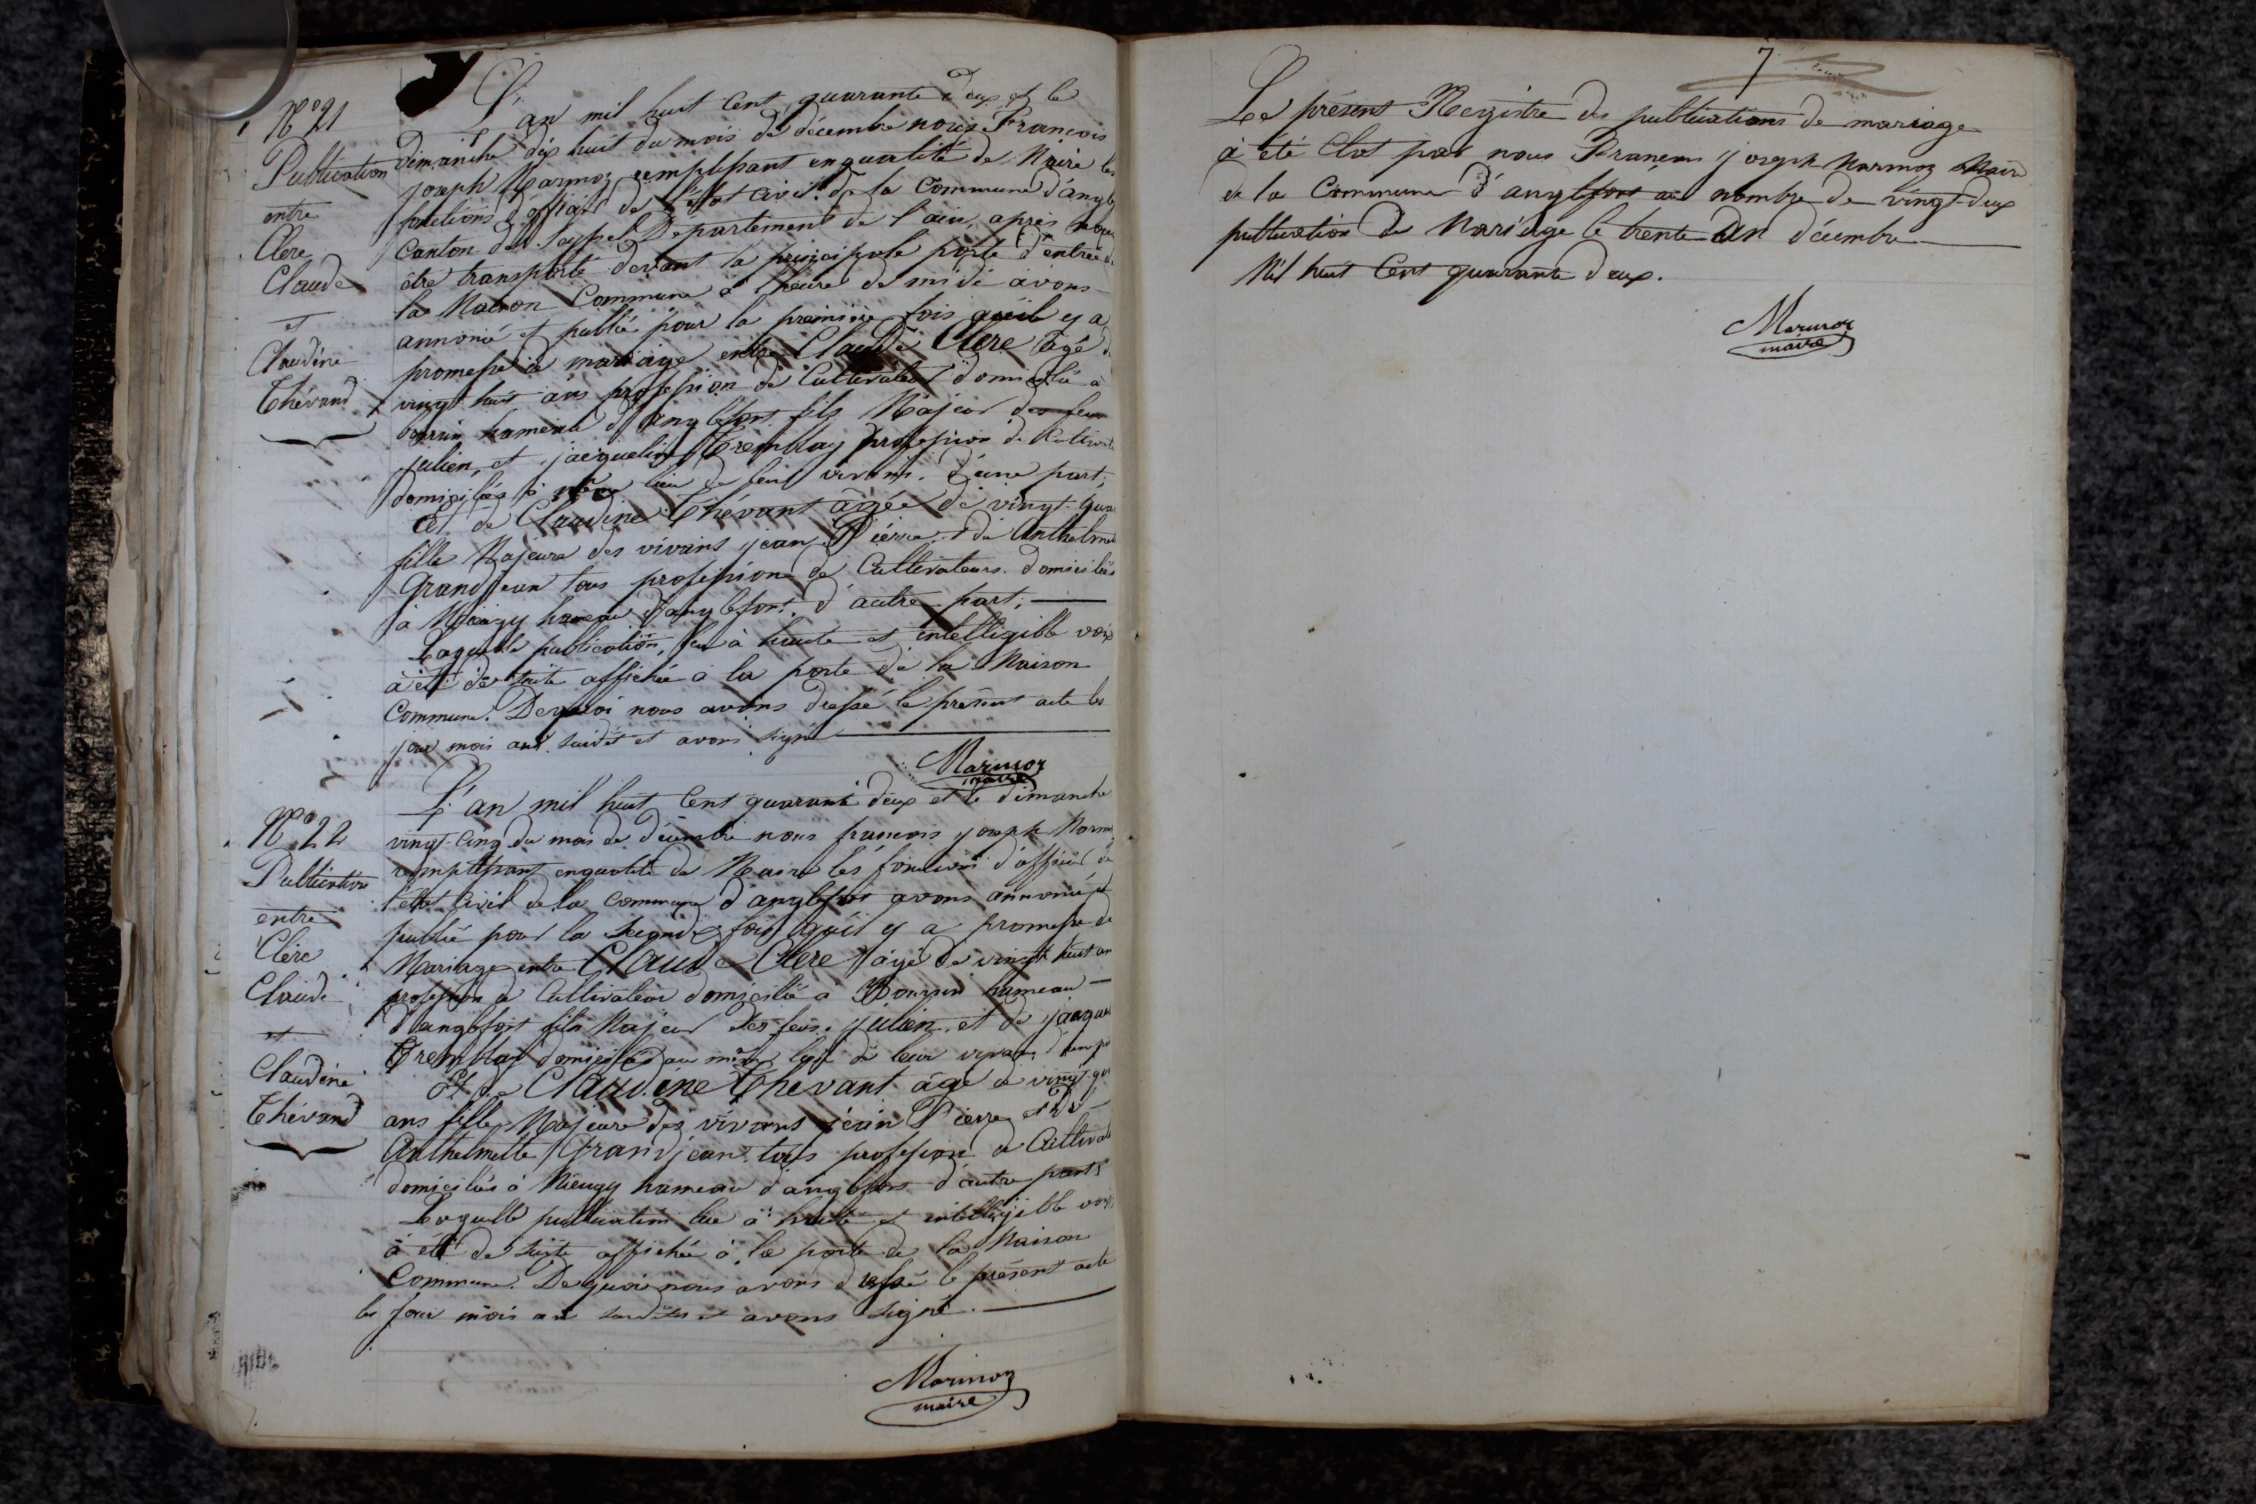 N° 21
Publication
entre
Clerc
Claude
et
Claudine
Thévand
L'an mil huit Cent quarante deux et le
dimanche dix huit du mois de décembre nous François
joseph Marmoz remplissant en qualité de Maire les
fonctions d'officier de l'état civil de la Commune d'angle
Canton de Seyssel Département de l'ain, après nous
être transporté devant la principale porte d'entrée de
la Maison Commune à l'heure de midi avons
annoncé et publié pour la première fois qu'il y a
promesse de mariage entre Claude Clerc âgé de
vingt huit ans profession de Cultivateur domicilié à
bourrin hameau d'anglefort fils Majeur des feu
julien, et jacqueline Tremblay profession de Cultivat
domiciliés à même lieu de leur vivans. d'une part;
Et de Claudine Thévant âgée de vingt quat
fille Majeure des vivans jean Pierre et de Anthelmet
Grandjean tous profession de Cultivateurs domiciliés
à hameau d'anglefort. d'autre part;
Laquelle publication, lu à haute et intelligible voix
à été de suite affichée à la porte de la Maison
Commune. De quoi nous avons dressé le présent acte les
jour mois an susdit et avons signé
Marmoz
maire
N° 22
Publication
entre
Clerc
Claude
et
Claudine
Thévand
L'an mil huit Cent quarante deux et le dimanche
vingt-cinq du mois de décembre nous françois joseph Marmo
remplissant en qualité de Maire les fonctions d'officier de
l'état Civil de la Commune d'anglefort avons annoncé et
publié pour la seconde fois qu'il y a promesse de
Mariage entre Claude Clerc âgé de vingt huit an
profession de Cultivateur domicilié à Bourrin hameau
d'anglefort fils Majeur des feus julien et de jacque
Tremblay domiciliés au même lieu de leur vivans, d'une p
Et de Claudine Thevant âgé de vingt qu
ans fille Majeure des vivans jean Pierre et de
Anthelmette Grandjean tous profession de Cultivat
domiciliés à hameau d'anglefort d'autre part;
Laquelle publication lue à haute et intelligible voix
à été de suite affichée à la porte de la Maison
Commune. De quoi nous avons dressé le présent acte
les jour mois an susdits et avons signé.
Marmoz
maire
7
Le présent Registre des publications de mariage
à été Clos par nous François joseph Marmoz Maire
de la Commune d'anglefort au nombre de vingt-deux
publication de Mariage le trente un décembre
Mil huit Cent quarante deux.
Marmoz
maire